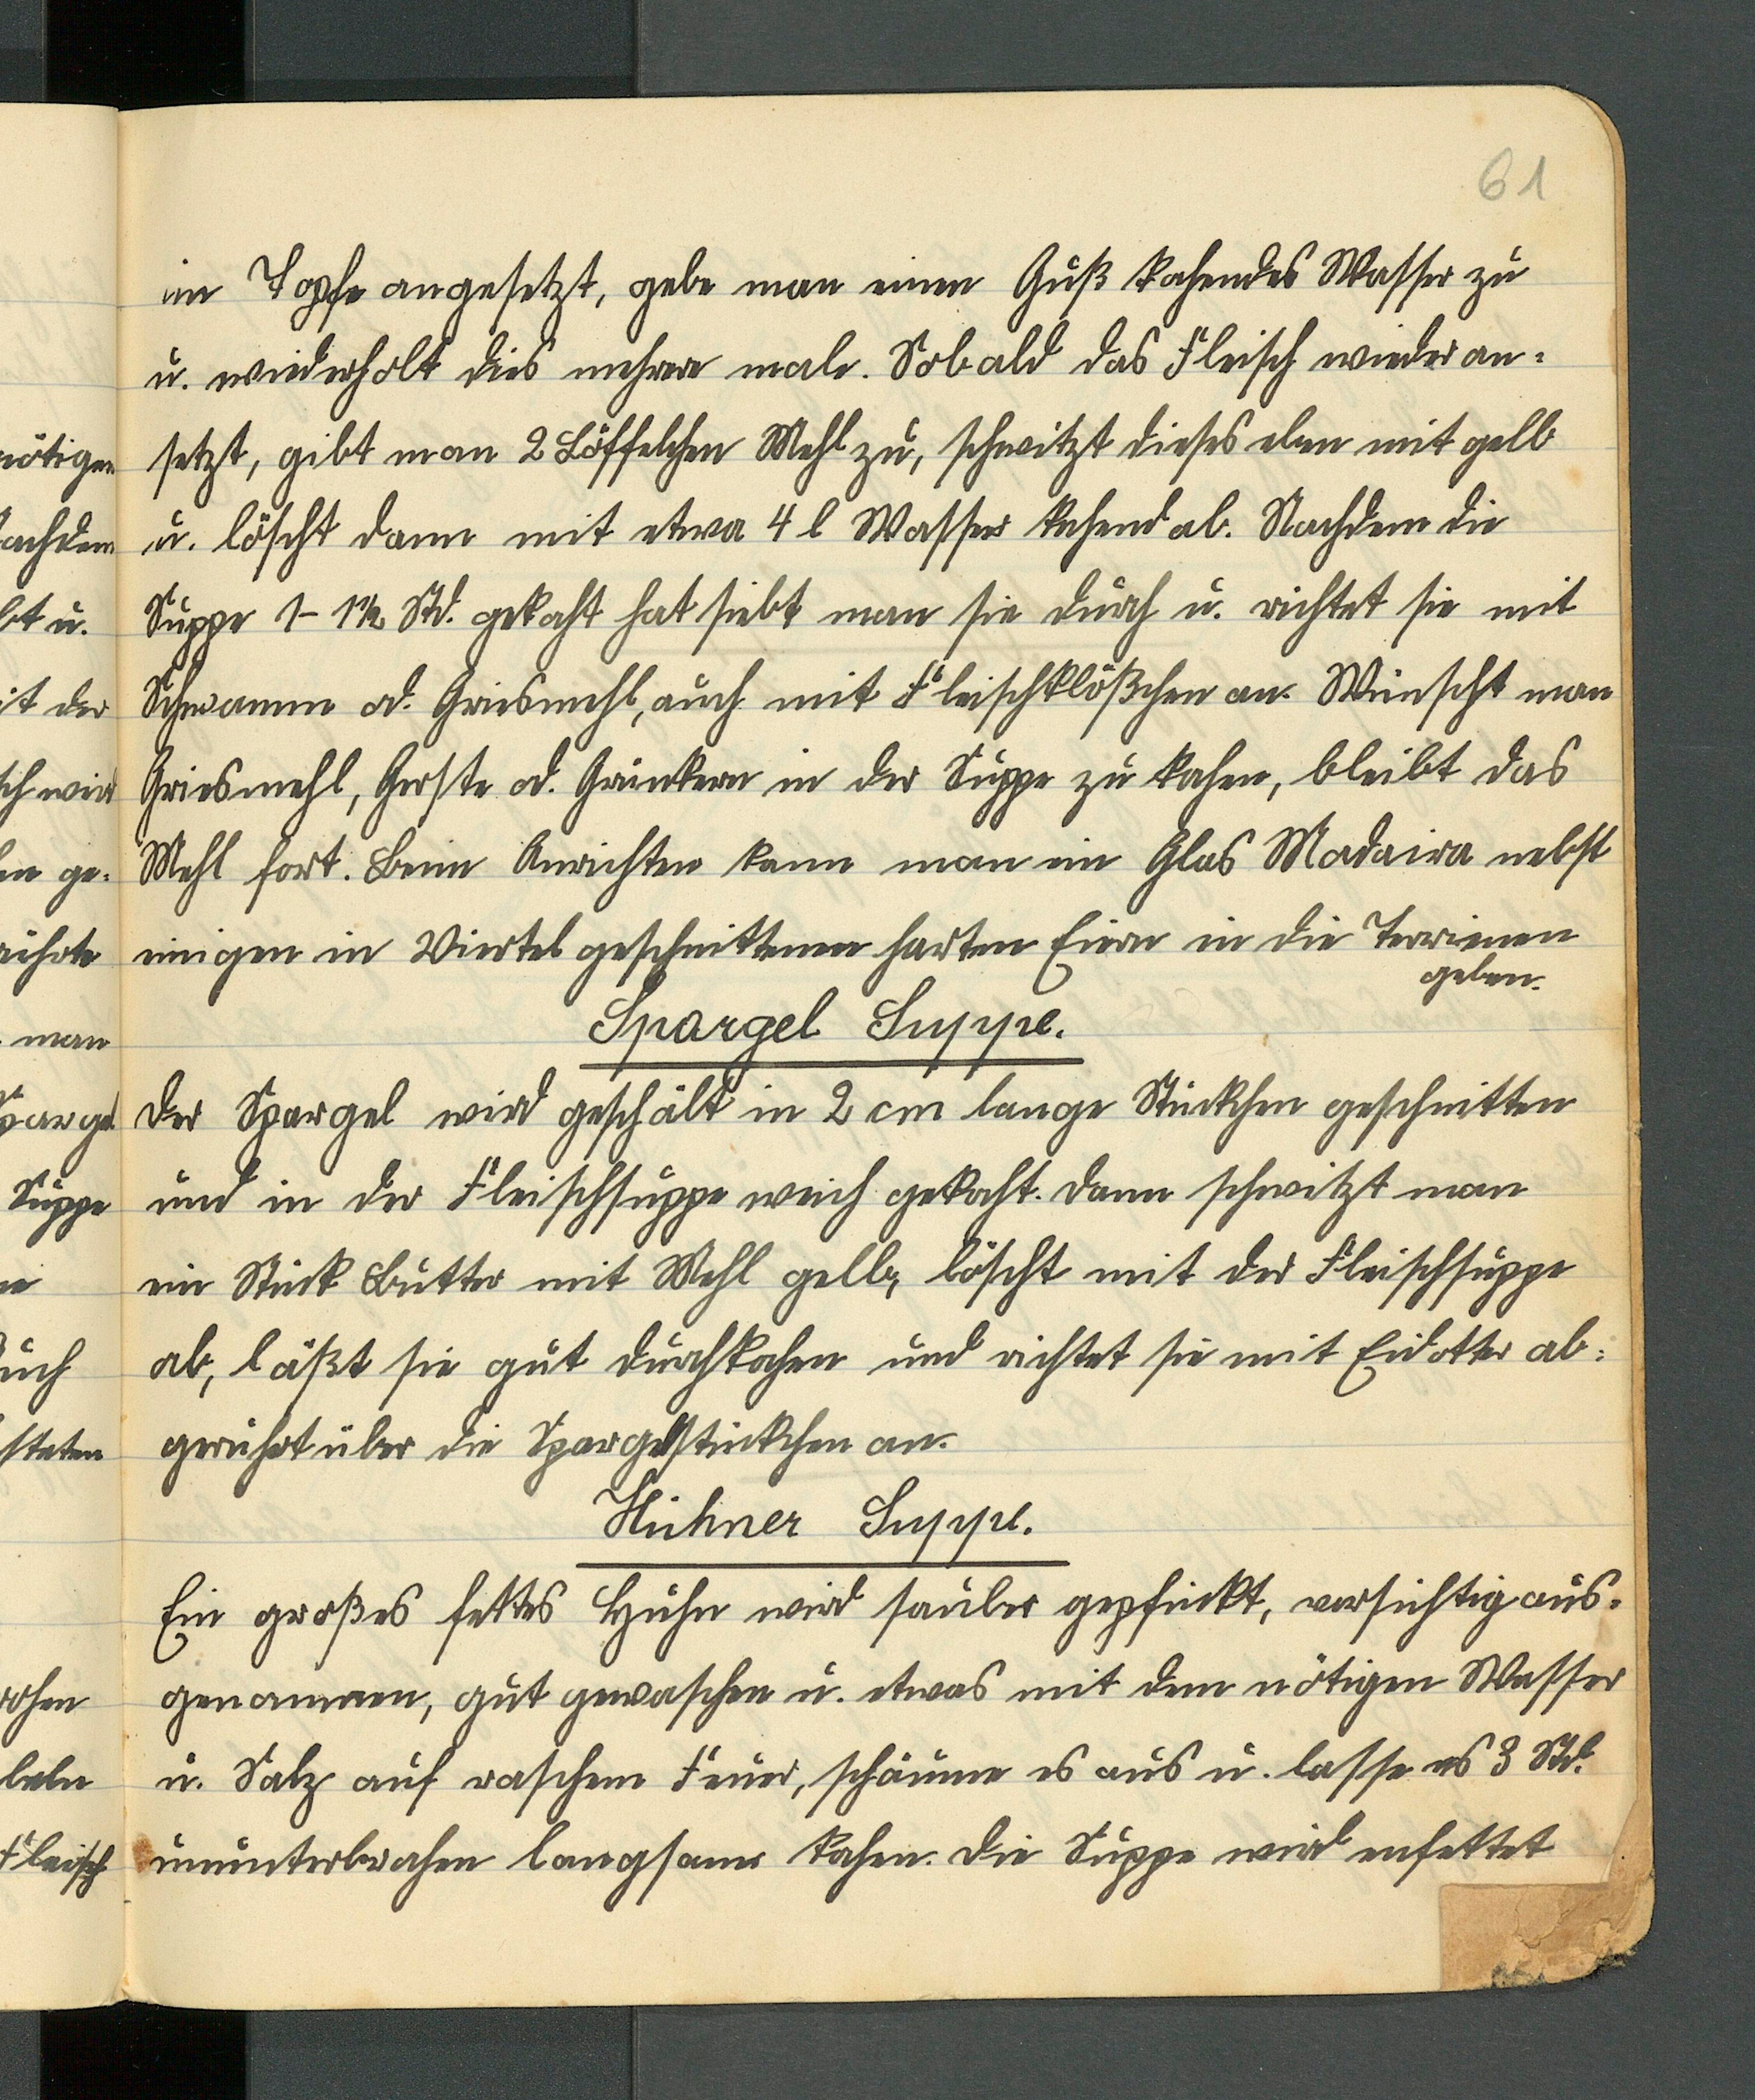 61
im Topfe angesetzt, gebe man einen Guß kochendes Wasser zu
u. wiederholt dies mehrere male. Sobald das Fleisch wieder an-
setzt, gibt man 2 Löffelchen Mehl zu, schwitzt dieses eben mit gelb
u. löscht dann mit etwa 4 l Wasser kochend ab. Nachdem die
Suppe 1-1½ Std. gekocht hat siebt man sie durch u. richtet sie mit
Schwamm od. Griesmehl, auch mit Fleischklößchen an. Wünscht man
Griesmehl, Gerste od. Grünkern in der Suppe zu kochen, bleibt das
Mehl fort. Beim Anrichten kann man ein Glas Madaira nebst
einigen in Viertel geschnittenen harten Eiern in die Terrienen
geben.
Spargel Suppe.
Der Spargel wird geschält in 2 cm lange Stückchen geschnitten
und in der Fleischsuppe weich gekocht. Dann schwitzt man
ein Stück Butter mit Mehl gelb, löscht mit der Fleischsuppe
ab, läßt sie gut durchkochen und richtet sie mit Eidotter ab-
gerührt über die Spargelstückchen an.
Hühner Suppe.
Ein großes fettes Huhn wird sauber gepflückt, vorsichtig aus-
genommen, gut gewaschen u. etwas mit dem nötigen Wasser
u. Salz auf raschem Feuer, schäume es aus u. lasse es 3 Std.
ununterbrochen langsam kochen. Die Suppe wird enfettet